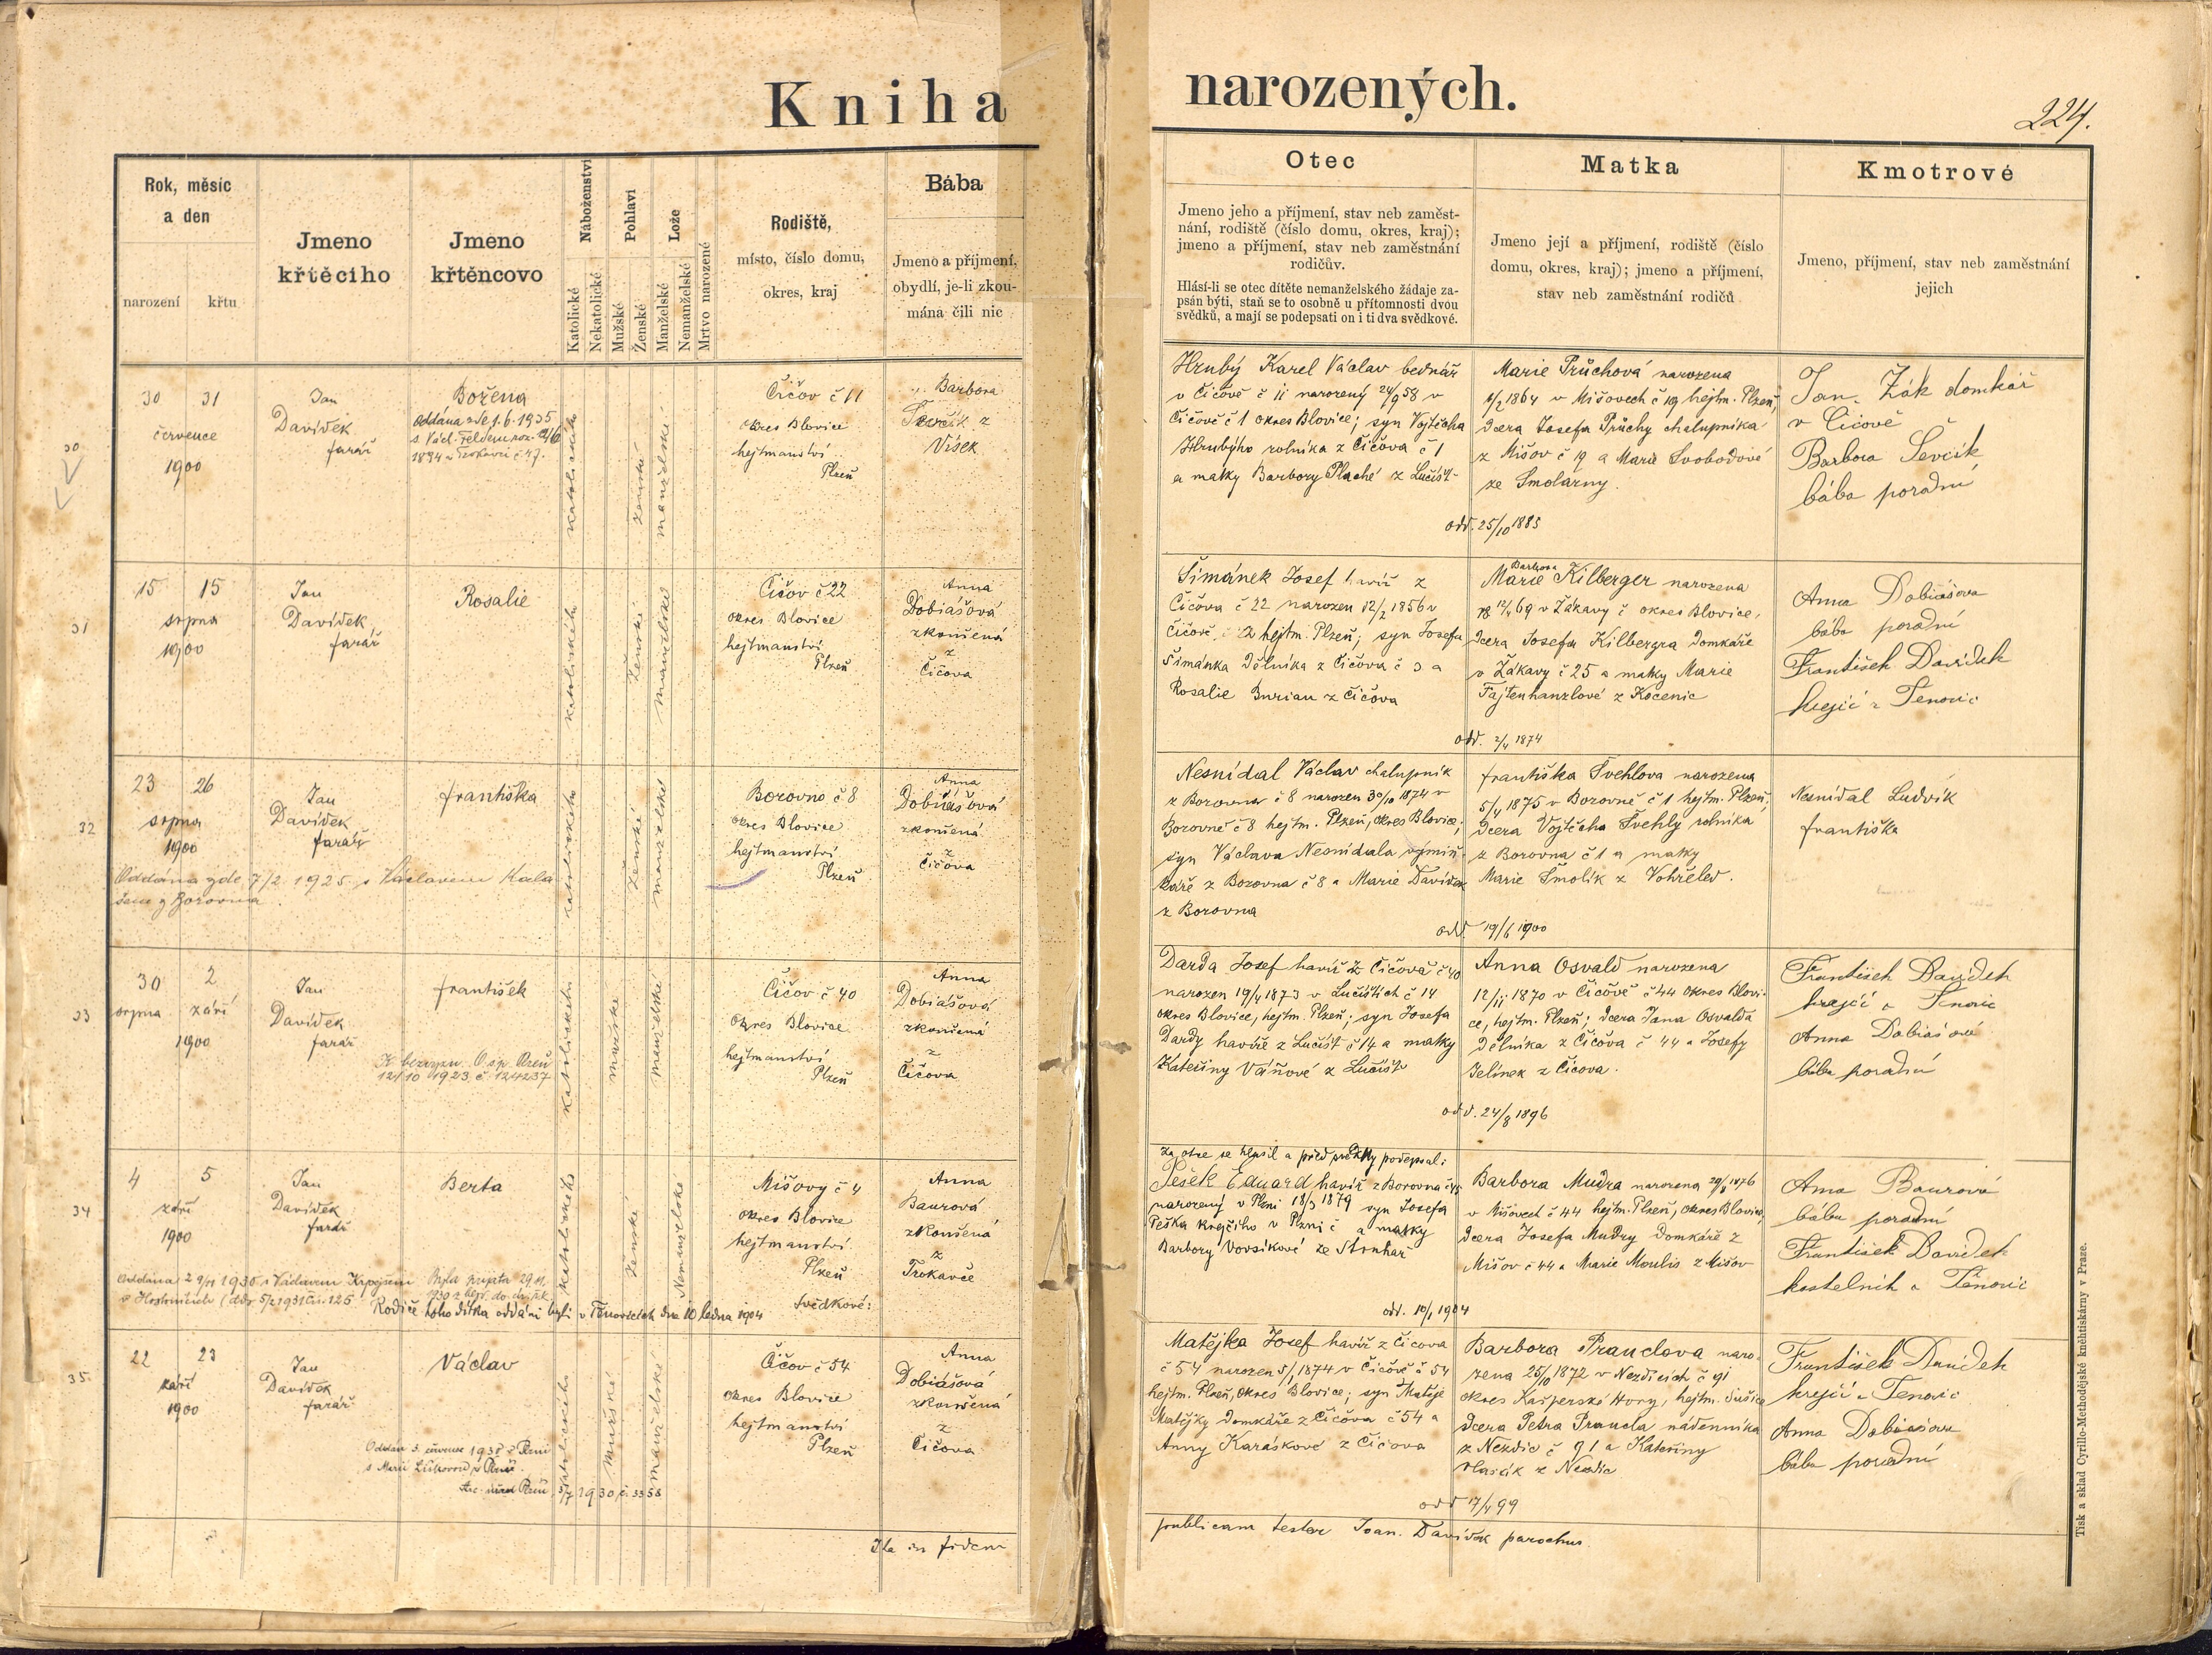 Kniha narozených.
224.
Rok, měsíc
a den
narození
křtu
Jmeno
křtěcího
Jmeno
křtěncovo
Náboženství
Katolické
Nekatolické
Pohlaví
Mužské
Ženské
Lože
Manželské
Nemanželské
Mrtvo narozené
Rodiště,
místo, číslo domu,
okres, kraj
Bába
Jmeno a příjmení,
obydlí, je-li zkou-
mána čili nic
Otec
Jmeno jeho a příjmení, stav neb zaměst-
nání, rodiště (číslo domu, okres, kraj);
jmeno a příjmení, stav neb zaměstnání
rodičův.
Hlásí-li se otec dítěte nemanželského žádaje za-
psán býti, staň se to osobně u přítomnosti dvou
svědků, a mají se podepsati on i ti dva svědkové.
Matka
Jmeno její a příjmení, rodiště (číslo
domu, okres, kraj); jmeno a příjmení,
stav neb zaměstnání rodičů
Kmotrové
Jmeno, příjmení, stav neb zaměstnání
jejich
30
30 31
července
1900
Jan
Davídek
farář
Božena
Oddána zde 1.6.1935
s Václ.
1894 č 47.
katolického
ženské
manželské
Čičov č 11
okres Blovice
hejtmanství
Plzeň
Barbora
Ševčík z
Vísek
Hrubý Karel Václav bednář
v Čičově č 11 narozený 24/9 58 v
Čičově č 1 okres Blovice; syn Vojtěcha
Hrubýho rolníka z Čičova č 1
a matky Barbory Plaché z Lučišť
Marie Průchová narozena
1/2 1864 v Mišovech č 19 hejtm. Plzeň,
dcera Josefa Průchy chalupníka
z Mišov č 19 a Marie Svobodové
ze Smolarny.
odd. 25/10 1885
Jan Žák domkář
v Čičově
Barbora Ševčík
bába poradní
31
15 15
srpna
1900
Jan
Davídek
farář
Rosalie
katolického
ženské
manželské
Čičov č 22
okres Blovice
hejtmanství
Plzeň
Anna
Dobiášová
zkoušená
z
Čičova
Šimánek Josef havíř z
Čičova č 22 narozen 12/2 1856 v
Čičově, 22 hejtm. Plzeň; syn Josefa
Šimánka dělníka z Čičova č 3 a
Rosalie Burian z Čičova
Barbora
Marie Kilberger narozena
12/4 69 v Žákavy č okres Blovice,
dcera Josefa Kilbergra domkáře
v Žákavy č 25 a matky Marie
Fajtenhanzlové z Kocenic
odd. 2/4 1874
Anna Dobiášova
bába poradní
František Davídek
krejčí z Tenovic
32
23 26
srpna
1900
Jan
Davídek
farář
františka
Oddána zde 7/2 1925 s Václavem Kala-
šem z Borovna
katolického
ženské
manželské
Borovno č 8
okres Blovice
hejtmanství
Plzeň
Anna
Dobiášová
zkoušená
z
Čičova
Nesnídal Václav chalupník
z Borovna č 8 narozen 30/10 1874 v
Borovně č 8 hejtm. Plzeň, okres Blovice,
syn Václava Nesnídala výmin-
káře z Borovna č 8 a Marie Davídek
z Borovna
františka Švehlova narozena
5/4 1875 v Borovně č 1 hejtm. Plzeň,
dcera Vojtěcha Švehly rolníka
z Borovna č 1 a matky
Marie Smolík z Vohřeled.
odd. 19/6 1900
Nesnídal Ludvík
františka
33
30 2
srpna září
1900
Jan
Davídek
farář
františek
12/10 1923 č. 124237
katolického
mužské
manželské
Čičov č 40
okres Blovice
hejtmanství
Plzeň
Anna
Dobiášová
zkoušená
z
Čičova
Darda Josef havíř z Čičova č 40
narozen 19/4 1873 v Lučištích č 14
okres Blovice, hejtm. Plzeň; syn Josefa
Dardy havíře z Lučišť č 14 a matky
Kateřiny Váňové z Lučišť
Anna Osvald narozena
12/11 1870 v Čičově č 44 okres Blovi-
ce, hejtm. Plzeň; dcera Jana Osvalda
dělníka z Čičova č 44 a Josefy
Jelínek z Čičova.
odd. 24/8 1896
František Davídek
krejčí z Tenovic
Anna Dobiášová
bába poradní
34
4 5
září
1900
Jan
Davídek
farář
Berta
Oddána 2 9/11 1930 s Václavem
Rodiče toho dítka oddáni byli v Těnovicích dne 10 ledna 1904
katolického
ženské
Nemanželské
Mišovy č 4
okres Blovice
hejtmanství
Plzeň
svědkové:
Anna
Baurová
zkoušená
z
Trokavce
Za otce se hlásil a před svědky podepsal:
Pešek Eduard havíř z Borovna č 45
narozený v Plzni 18/3 1879 syn Josefa
Peška krejčího v Plzni č a matky
Barbory Vovsíkové ze Štnhař
Barbora Mudra narozena 29/8 1876
v Mišovech č 44 hejtm. Plzeň, okres Blovice,
dcera Josefa Mudry domkáře z
Mišov č 44 a Marie Moulis z Mišov
odd. 10/1 1904
Anna Baurová
bába poradní
František Davídek
kostelník z Těnovic
35
22 23
září
1900
Jan
Davídek
farář
Václav
Oddán 5. července 1930 v Plzni
s Marií v Plzni.
Arc. úřad Plzeň, 5/7 1930 čí 3358
katolického
mužské
manželské
Čičov č 54
okres Blovice
hejtmanství
Plzeň
Anna
Dobiášová
zkoušená
z
Čičova
Matějka Josef havíř z Čičova
č 54 narozen 5/1 1874 v Čičově č 54
hejtm. Plzeň, okres Blovice; syn Matěje
Matějky domkáře z Čičova č 54 a
Anny Karáskové z Čičova
Barbora Prauclova naro-
zena 25/10 1872 v Nezdicích č 91
okres Kašperské Hory, hejtm. Sušice
dcera Petra Praucla nádenníka
z Nezdic č 91 a Kateřiny
Vlasák z Nezdic
odd 17/4 99
František Davídek
krejčí z Tenovic
Anna Dobiášova
bába poradní
Ita in fidem publicam testor Joan. Davídek parochus.
Tisk a sklad Cyrillo-Methodějské knéhtiskárny v Praze.